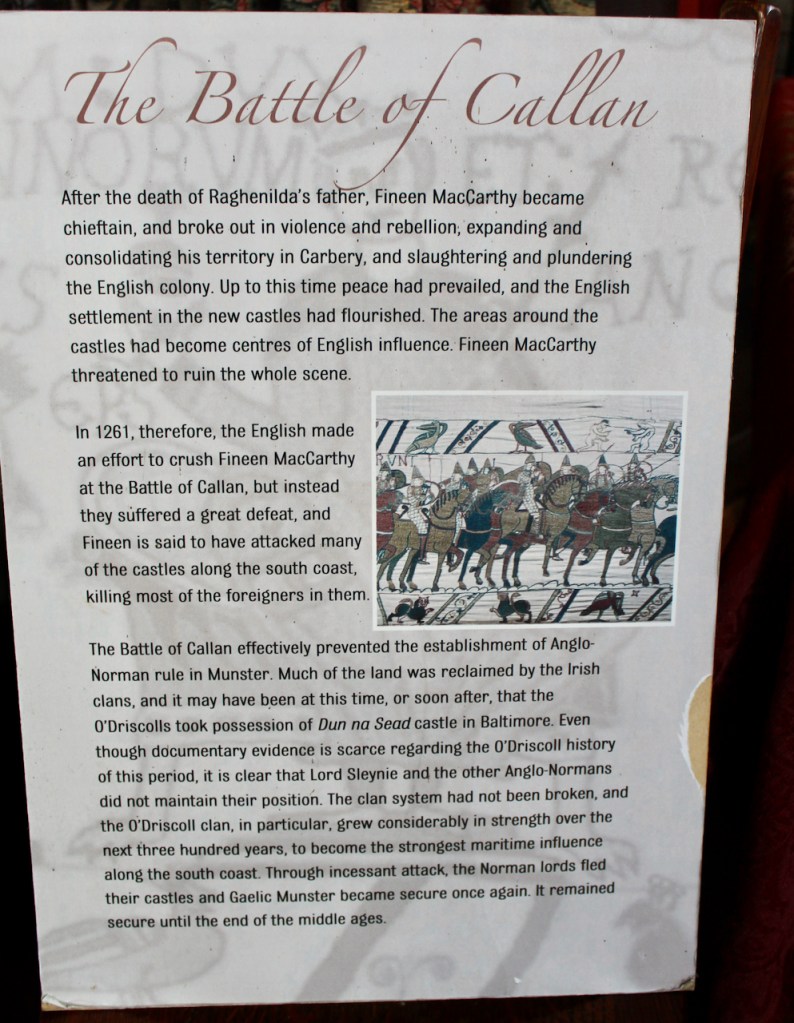 The Battle of Callan
After the death of Raghenilda's father, Fineen MacCarthy became
chieftain, and broke out in violence and rebellion, expanding and
consolidating his territory in Carbery, and slaughtering and plundering
the English colony. Up to this time peace had prevailed, and the English
settlement in the new castles had flourished. The areas around the
castles had become centres of English influence. Fineen MacCarthy
threatened to ruin the whole scene.
In 1261, therefore, the English made
an effort to crush Fineen MacCarthy
at the Battle of Callan, but instead
they suffered a great defeat, and
Fineen is said to have attacked many
of the castles along the south coast,
killing most of the foreigners in them.
The Battle of Callan effectively prevented the establishment of Anglo-
Norman rule in Munster. Much of the land was reclaimed by the Irish
clans, and it may have been at this time, or soon after, that the
O'Driscolls took possession of Dun na Sead castle in Baltimore. Even
though documentary evidence is scarce regarding the O'Driscoll history
of this period, it is clear that Lord Sleynie and the other Anglo-Normans
did not maintain their position. The clan system had not been broken, and
the O'Driscoll clan, in particular, grew considerably in strength over the
next three hundred years, to become the strongest maritime influence
along the south coast. Through incessant attack, the Norman lords fled
their castles and Gaelic Munster became secure once again. It remained
secure until the end of the middle ages.